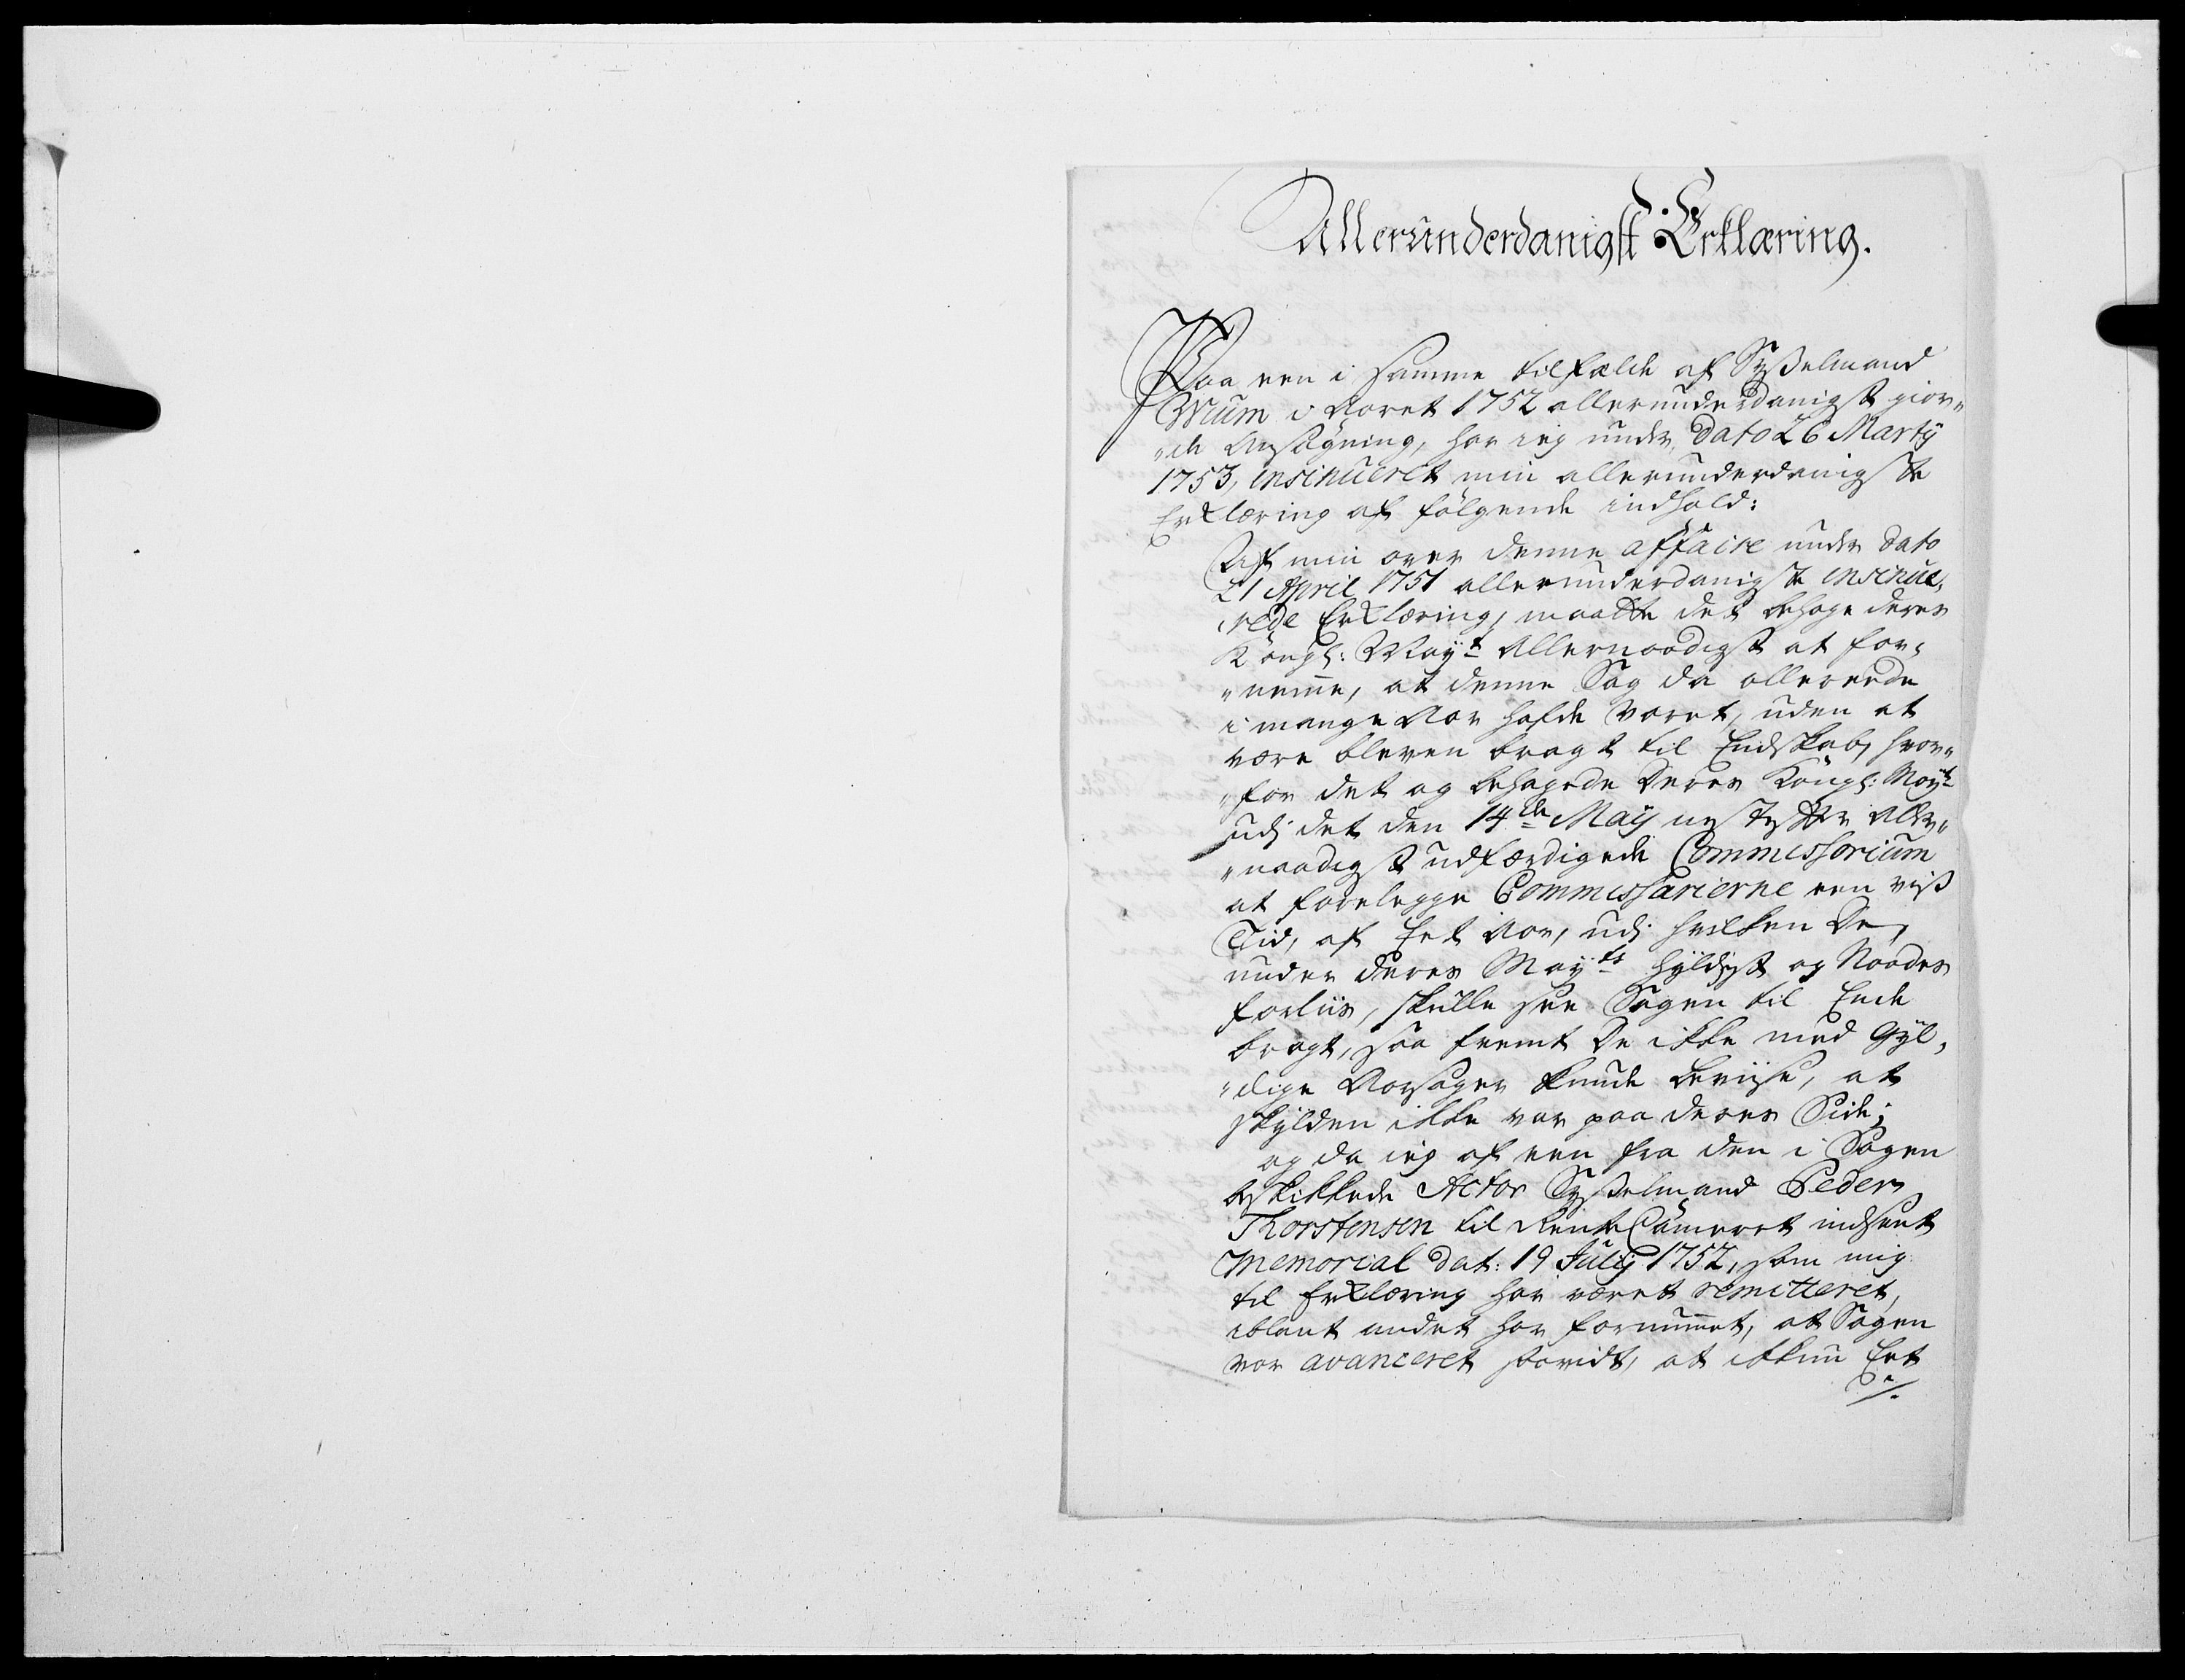 Allerunderdanigst Erklæring.
Paa een i samme tilfælde af Sysselmand
Wium i Aaret 1752 allerunderdanigst gior„
„de Ansøgning, har ieg under Dato 26 Martÿ
1753, insinueret min allerunderdanigste
Erklæring af følgende indhold:
Af min over denne affaire under Dato
21 April 1751 allerunderdanigste insinue„
„rede Erklæring, maatte det behage deres
Kongl: Mayt Allernaadigst at for„
„nemme, at denne Sag da allereede
i mange Aar hafde varet, uden at
være bleven bragt til Endskab, hvor„
„for det og behagede Deres Kongl: Mayt
udj det den 14de Maÿ nestefter Aller„
„naadigst udfærdigede Commissorium
at forelegge Commissarierne een viss
Tid, af Eet Aar, udj hvilken De,
under deres Mayts hyldest og Naades
forliis, skulle see Sagen til Ende
bragt, saa fremt De ikke med Gyl„
„dige Aarsager kunde beviise, at
skylden ikke var paa deres Side;
og da ieg af een fra den i Sagen
beskikkede Actor Sysselmand Peder
Thorstensen til RenteCammeret indsent
Memorial dat: 19 Julÿ 1752, som mig
til Erklæring har været remitteret,
iblant andet har fornummet, at Sagen
var avanceret saavidt, at ikkun Eet
./.